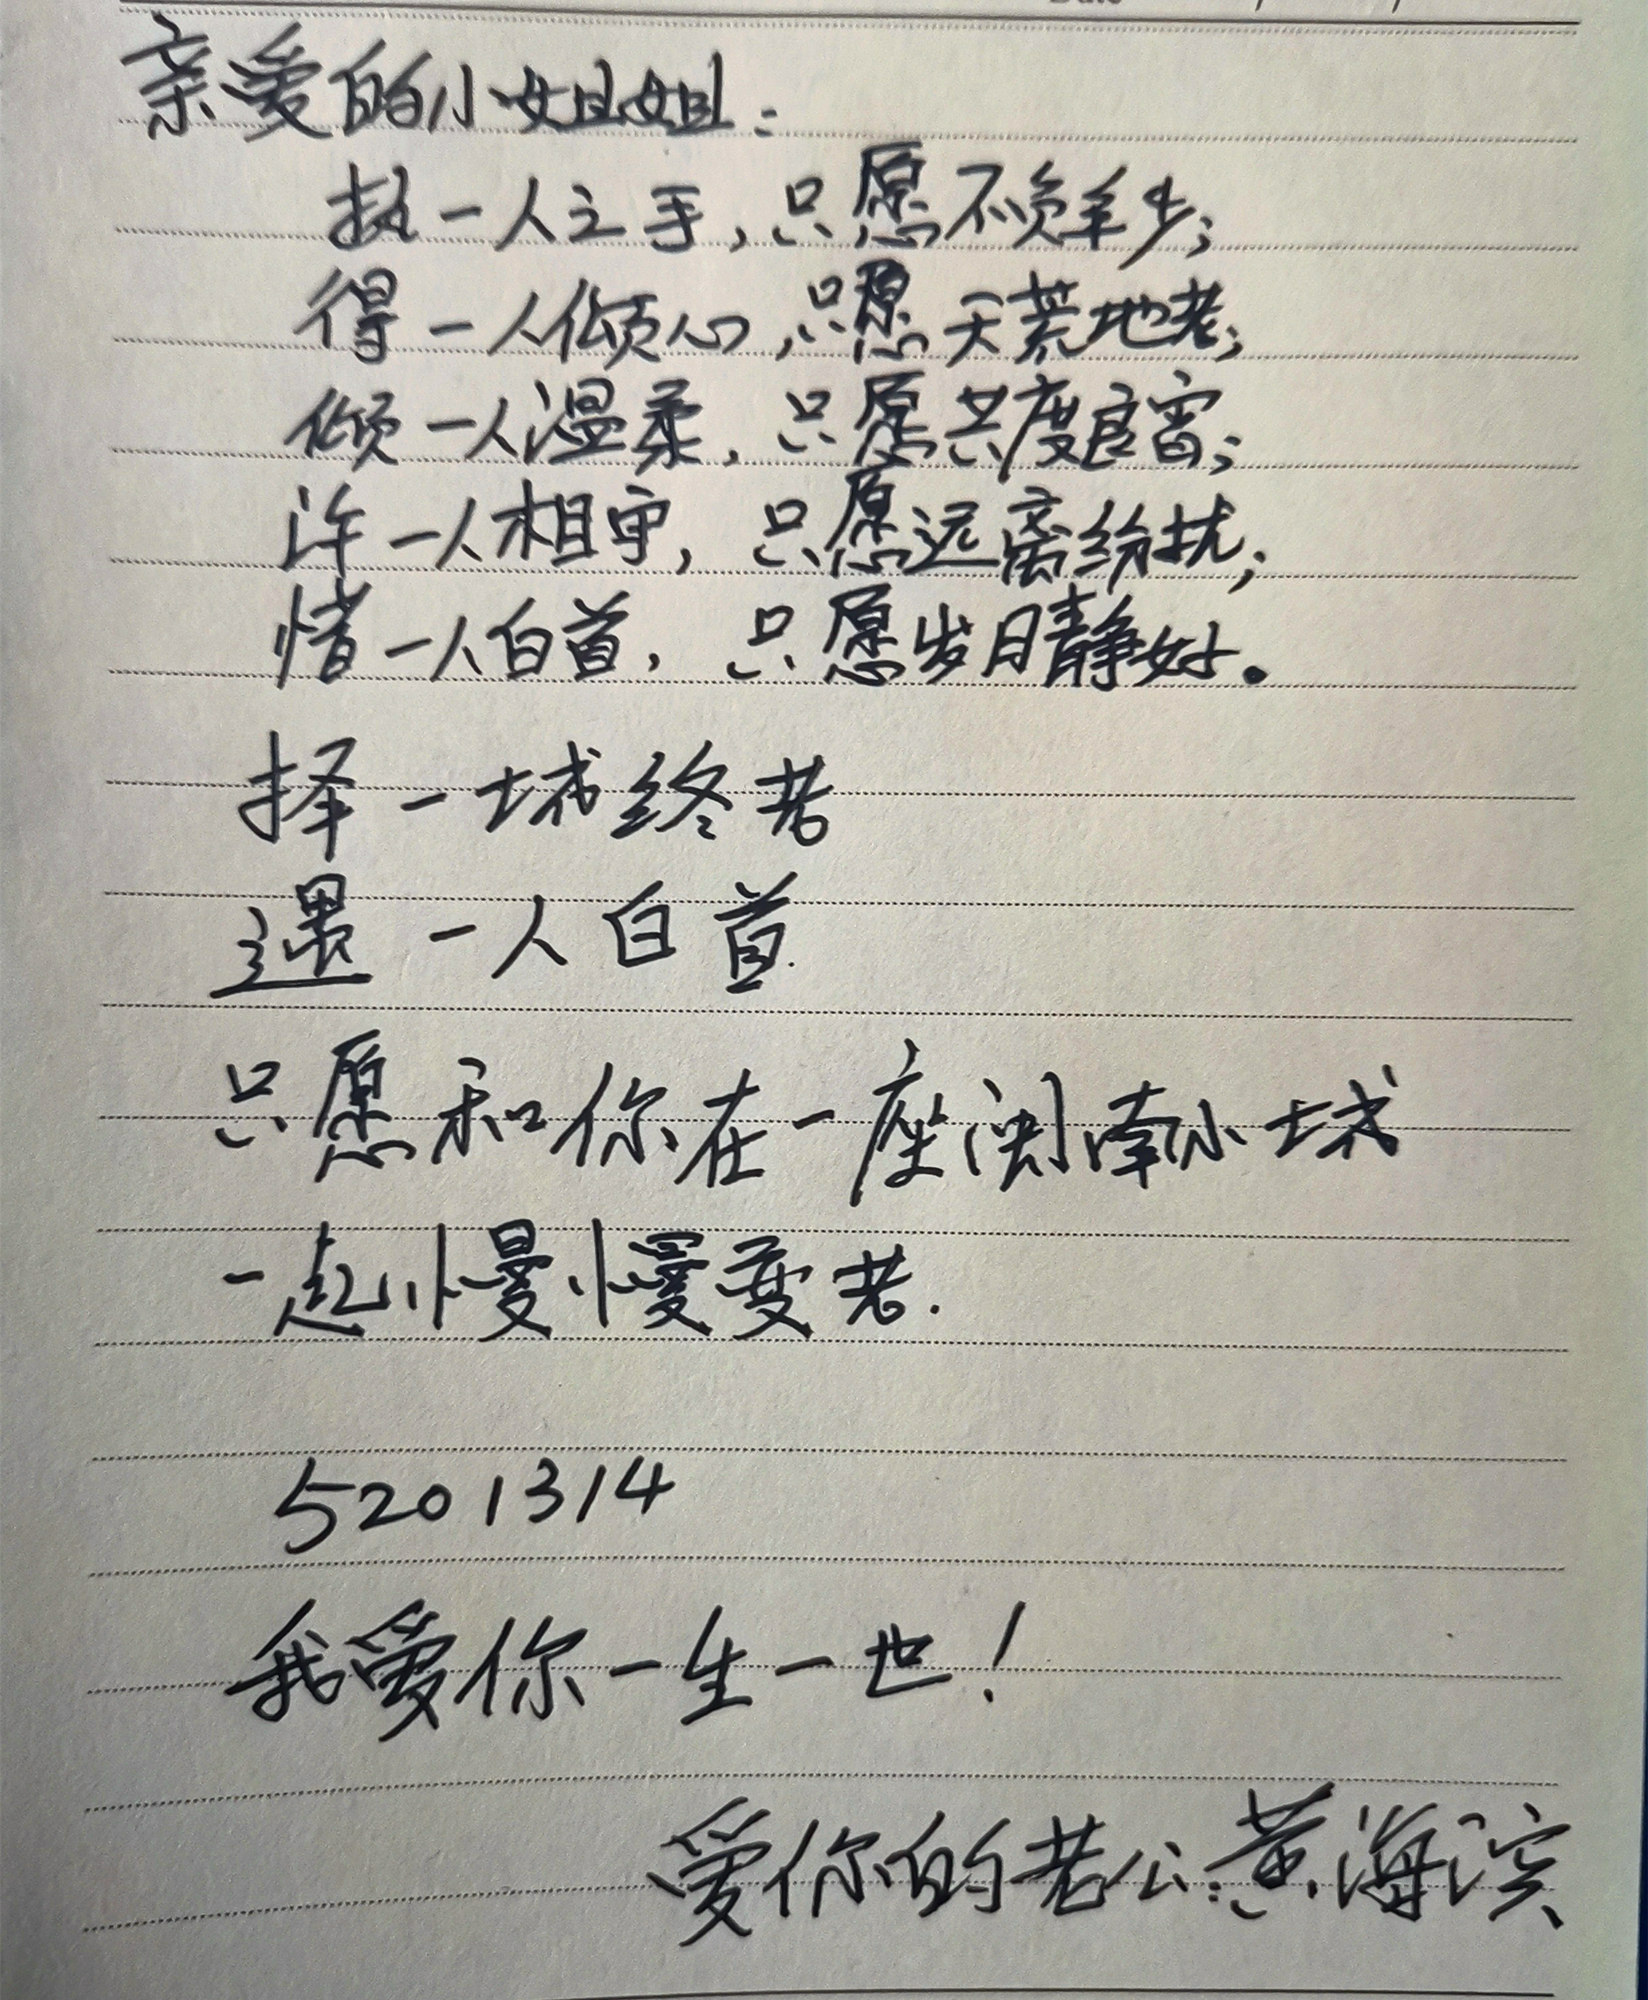 亲爱的小姐姐：
执一人之手，只愿不负年少；
得一人倾心，只愿天荒地老；
倾一人温柔，只愿共度良宵；
许一人相守，只愿远离纷扰；
惜一人白首，只愿岁月静好。
择一城终老
遇一人白首.
只愿和你在一座闽南小城
一起慢慢变老.
5201314
我爱你一生一世！
爱你的老公：黄海滨